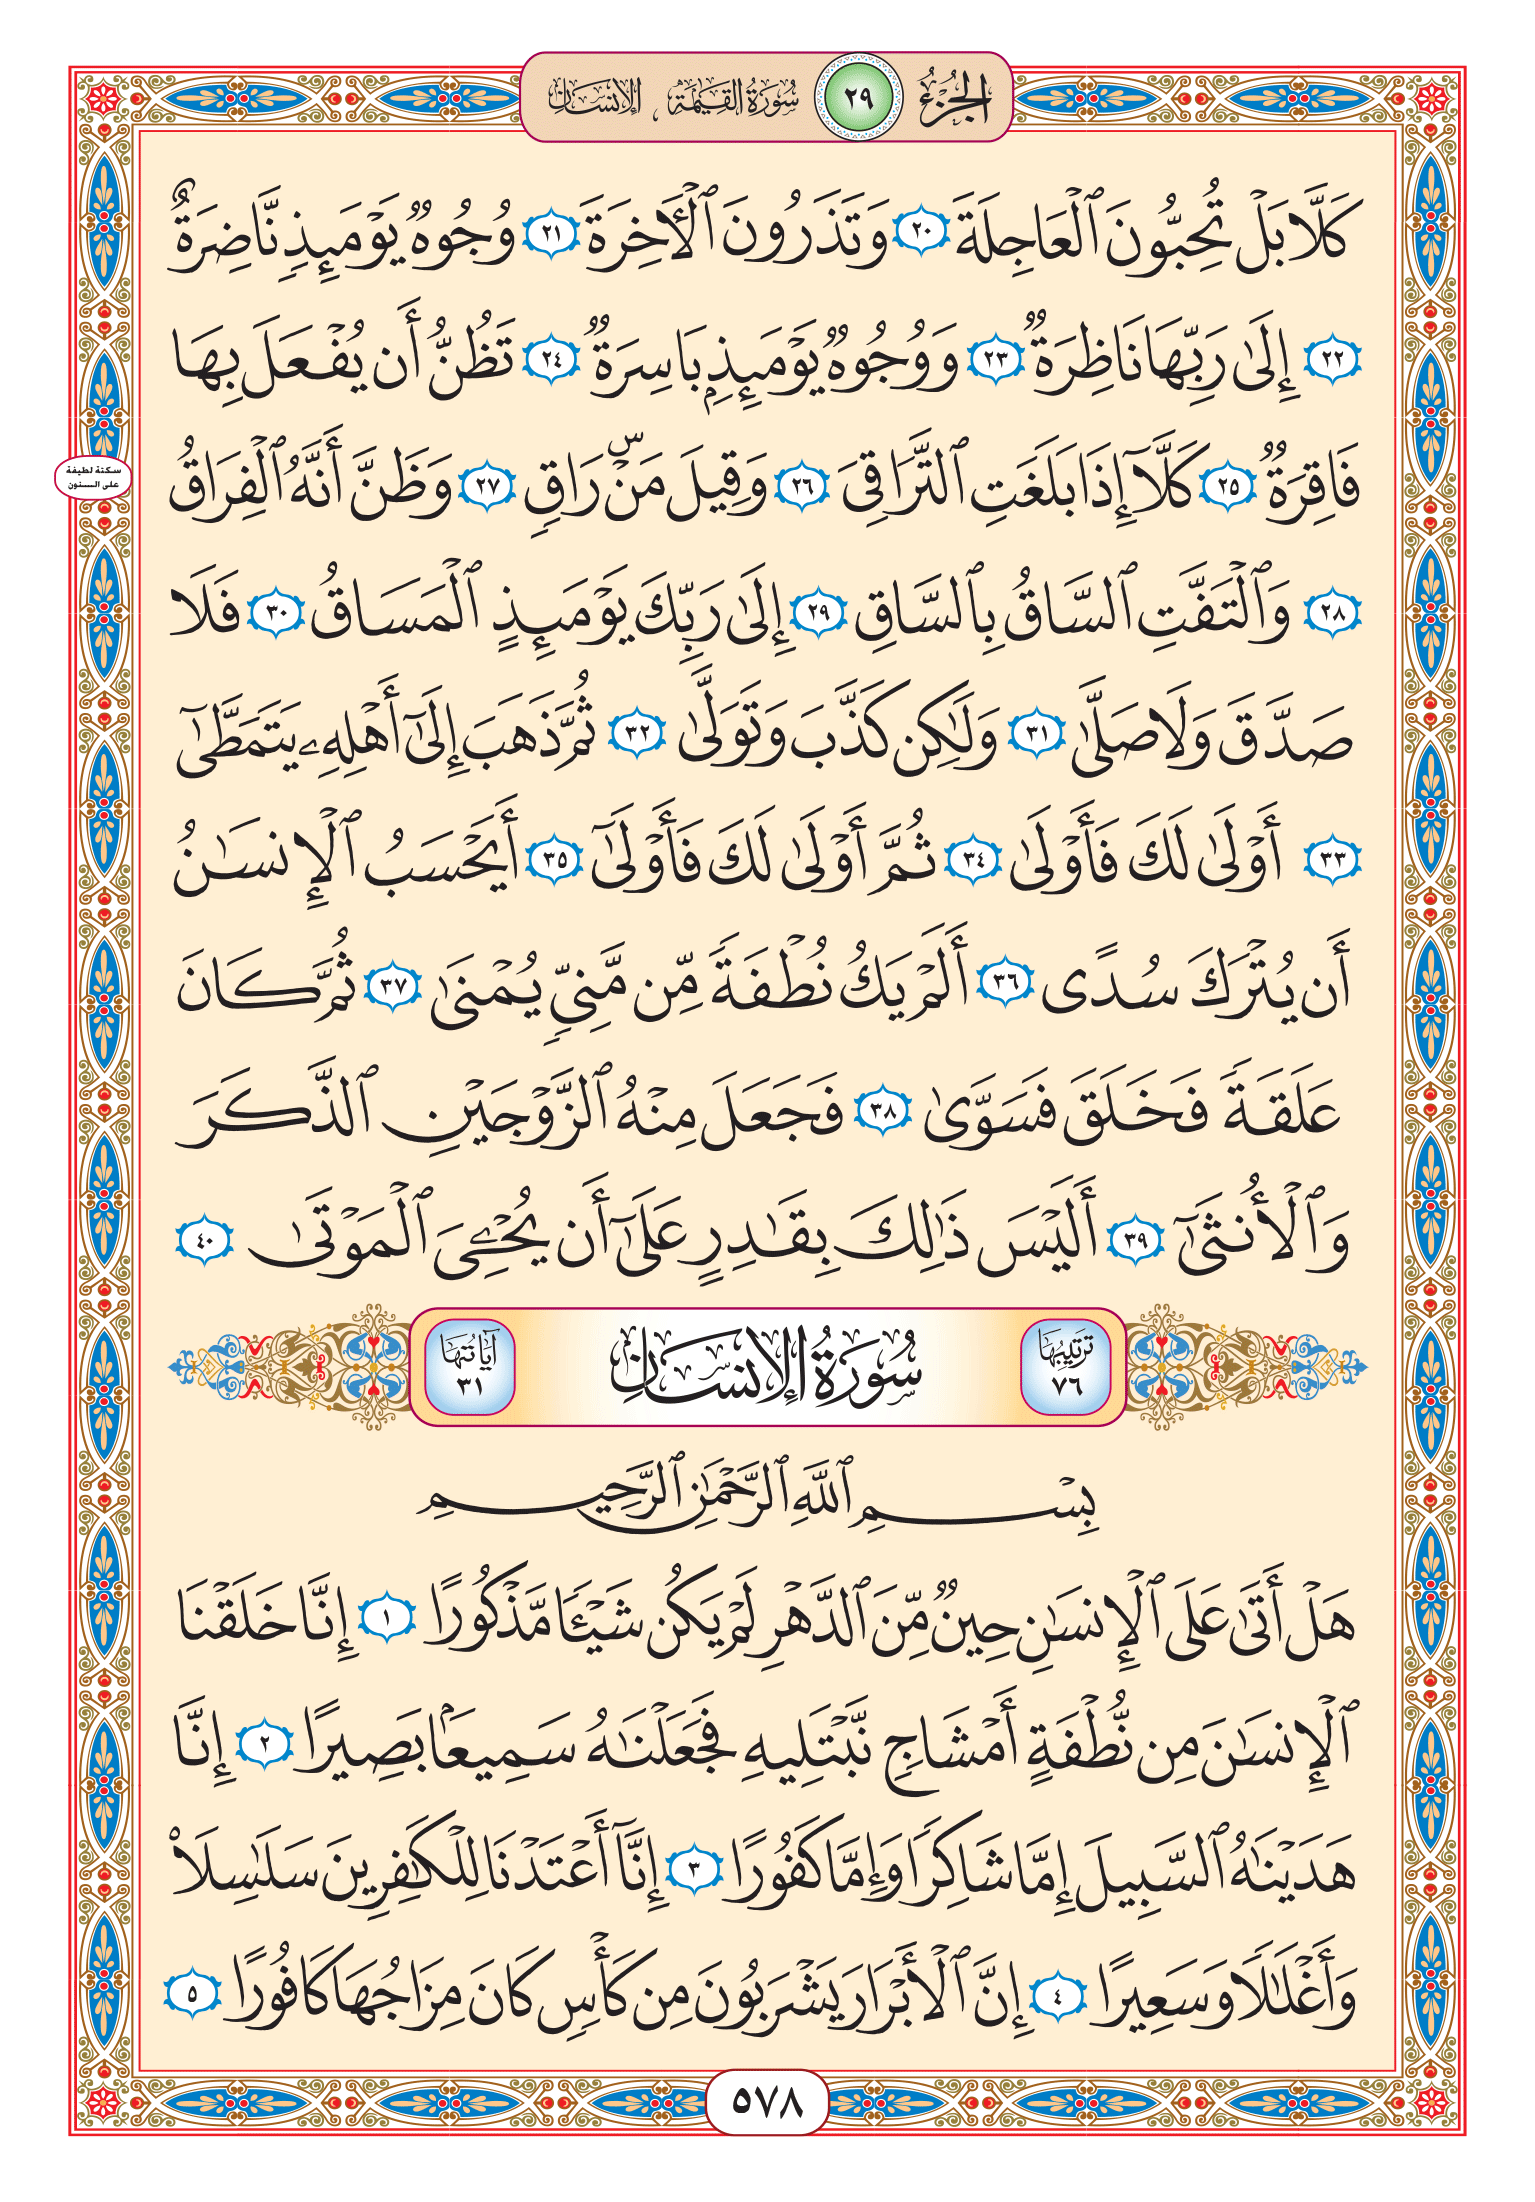 الجزء ٢٩ سورة القيمة ، الإنسان
كَلَّا بَلْ تُحِبُّونَ ٱلْعَاجِلَةَ ٢٠ وَتَذَرُونَ ٱلْأَخِرَةَ ٢١ وُجُوهٌ يَوْمَئِذٍ نَّاضِرَةٌ
٢٢ إِلَىٰ رَبِّهَا نَاظِرَةٌ ٢٣ وَوُجُوهٌ يَوْمَئِذِۭ بَاسِرَةٌ ٢٤ تَظُنُّ أَن يُفْعَلَ بِهَا
فَاقِرَةٌ ٢٥ كَلَّآ إِذَا بَلَغَتِ ٱلتَّرَاقِىَ ٢٦ وَقِيلَ مَنْۜ رَاقٍ ٢٧ وَظَنَّ أَنَّهُ ٱلْفِرَاقُ
سكتة لطيفة
على السنون
٢٨ وَٱلْتَفَّتِ ٱلسَّاقُ بِٱلسَّاقِ ٢٩ إِلَىٰ رَبِّكَ يَوْمَئِذٍ ٱلْمَسَاقُ ٣٠ فَلَا
صَدَّقَ وَلَا صَلَّىٰ ٣١ وَلَـٰكِن كَذَّبَ وَتَوَلَّىٰ ٣٢ ثُمَّ ذَهَبَ إِلَىٰٓ أَهْلِهِۦ يَتَمَطَّىٰٓ
٣٣ أَوْلَىٰ لَكَ فَأَوْلَىٰ ٣٤ ثُمَّ أَوْلَىٰ لَكَ فَأَوْلَىٰٓ ٣٥ أَيَحْسَبُ ٱلْإِنسَـٰنُ
أَن يُتْرَكَ سُدًى ٣٦ أَلَمْ يَكُ نُطْفَةً مِّن مَّنِىٍّ يُمْنَىٰ ٣٧ ثُمَّ كَانَ
عَلَقَةً فَخَلَقَ فَسَوَّىٰ ٣٨ فَجَعَلَ مِنْهُ ٱلزَّوْجَيْنِ ٱلذَّكَرَ
وَٱلْأُنثَىٰٓ ٣٩ أَلَيْسَ ذَٰلِكَ بِقَـٰدِرٍ عَلَىٰٓ أَن يُحْـِۧىَ ٱلْمَوْتَىٰ ٤٠
ترتيبها ٧٦ سورة الإنسان آياتها ٣١
بِسْمِ ٱللَّهِ ٱلرَّحْمَـٰنِ ٱلرَّحِيمِ
هَلْ أَتَىٰ عَلَى ٱلْإِنسَـٰنِ حِينٌ مِّنَ ٱلدَّهْرِ لَمْ يَكُن شَيْـًٔا مَّذْكُورًا ١ إِنَّا خَلَقْنَا
ٱلْإِنسَـٰنَ مِن نُّطْفَةٍ أَمْشَاجٍ نَّبْتَلِيهِ فَجَعَلْنَـٰهُ سَمِيعَۢا بَصِيرًا ٢ إِنَّا
هَدَيْنَـٰهُ ٱلسَّبِيلَ إِمَّا شَاكِرًا وَإِمَّا كَفُورًا ٣ إِنَّآ أَعْتَدْنَا لِلْكَـٰفِرِينَ سَلَـٰسِلَا۟
وَأَغْلَـٰلًا وَسَعِيرًا ٤ إِنَّ ٱلْأَبْرَارَ يَشْرَبُونَ مِن كَأْسٍ كَانَ مِزَاجُهَا كَافُورًا ٥
٥٧٨